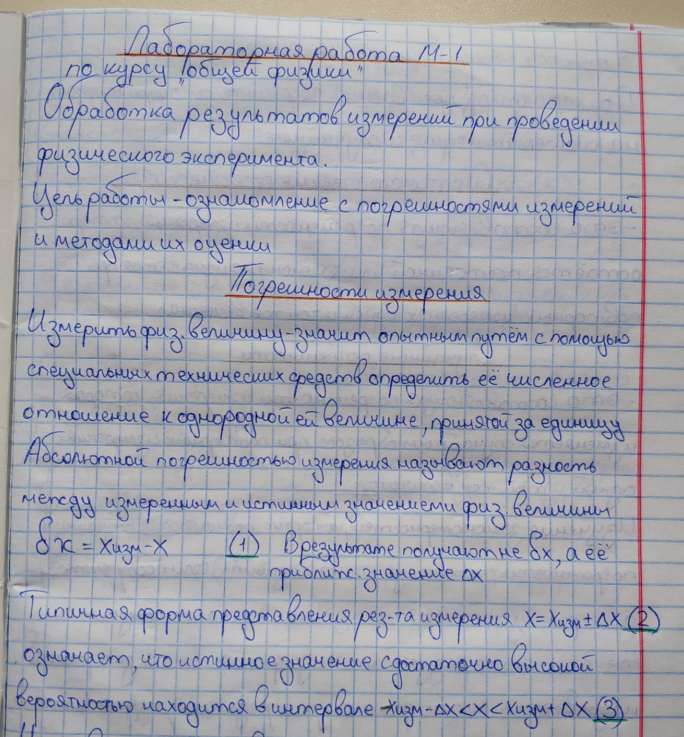 Лабораторная работа М-1
по курсу "общей физики"
Обработка результатов измерений при проведении
физического эксперимента.
Цель работы - ознакомление с погрешностями измерений
и методами их оценки
Погрешности измерения
Измерить физ. величину - значит опытным путём с помощью
специальных технических средств определить её численное
отношение к однородной ей величине, принятой за единицу
Абсолютной погрешностью измерения называют разность
между измеренным и истинным значением физ. величины
δx = xизм - x (1) В результате получают не δx, а её
приближ. значение Δx
Типичная форма представления рез-та измерения x = xизм ± Δx (2)
означает, что истинное значение с достаточно высокой
вероятностью находится в интервале xизм - Δx < x < xизм + Δx (3)